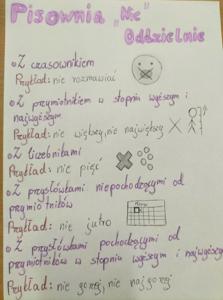 Pisownia „Nie”
Oddzielnie
Z czasownikiem
Przykład: nie rozmawiać
Z przymiotnikiem w stopniu wyższym i
najwyższym
Przykład: nie większy, nie największy
Z liczebnikami
Przykład: nie pięć
Z przysłówkami niepochodzącymi od
przymiotników
Przykład: nie jutro
Z przysłówkami pochodzącymi od
przymiotników w stopniu wyższym i najwyższym
Przykład: nie gorzej, nie najgorzej